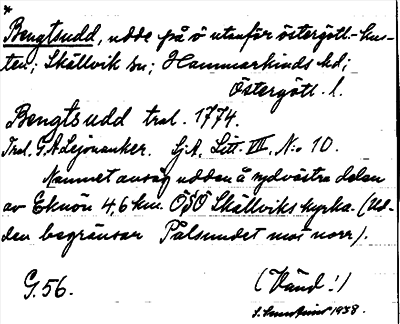 *
Bengtsudd, udde på ö utanför östergötl.-kus-
ten; Skällvik sn; Hammarkinds hd;
Östergötl. l.
Bengtsudd trol. 1774.
Trol. G A Lejonanker. Sj.A. Litt. III, No 10.
Namnet ansåg udden å sydvästra delen
av Eknön 4,6 km. ÖSÖ Skällviks kyrka. (Ud-
den begränsar Pålsundet mot norr).
G. 56.
(Vänd!)
1938.